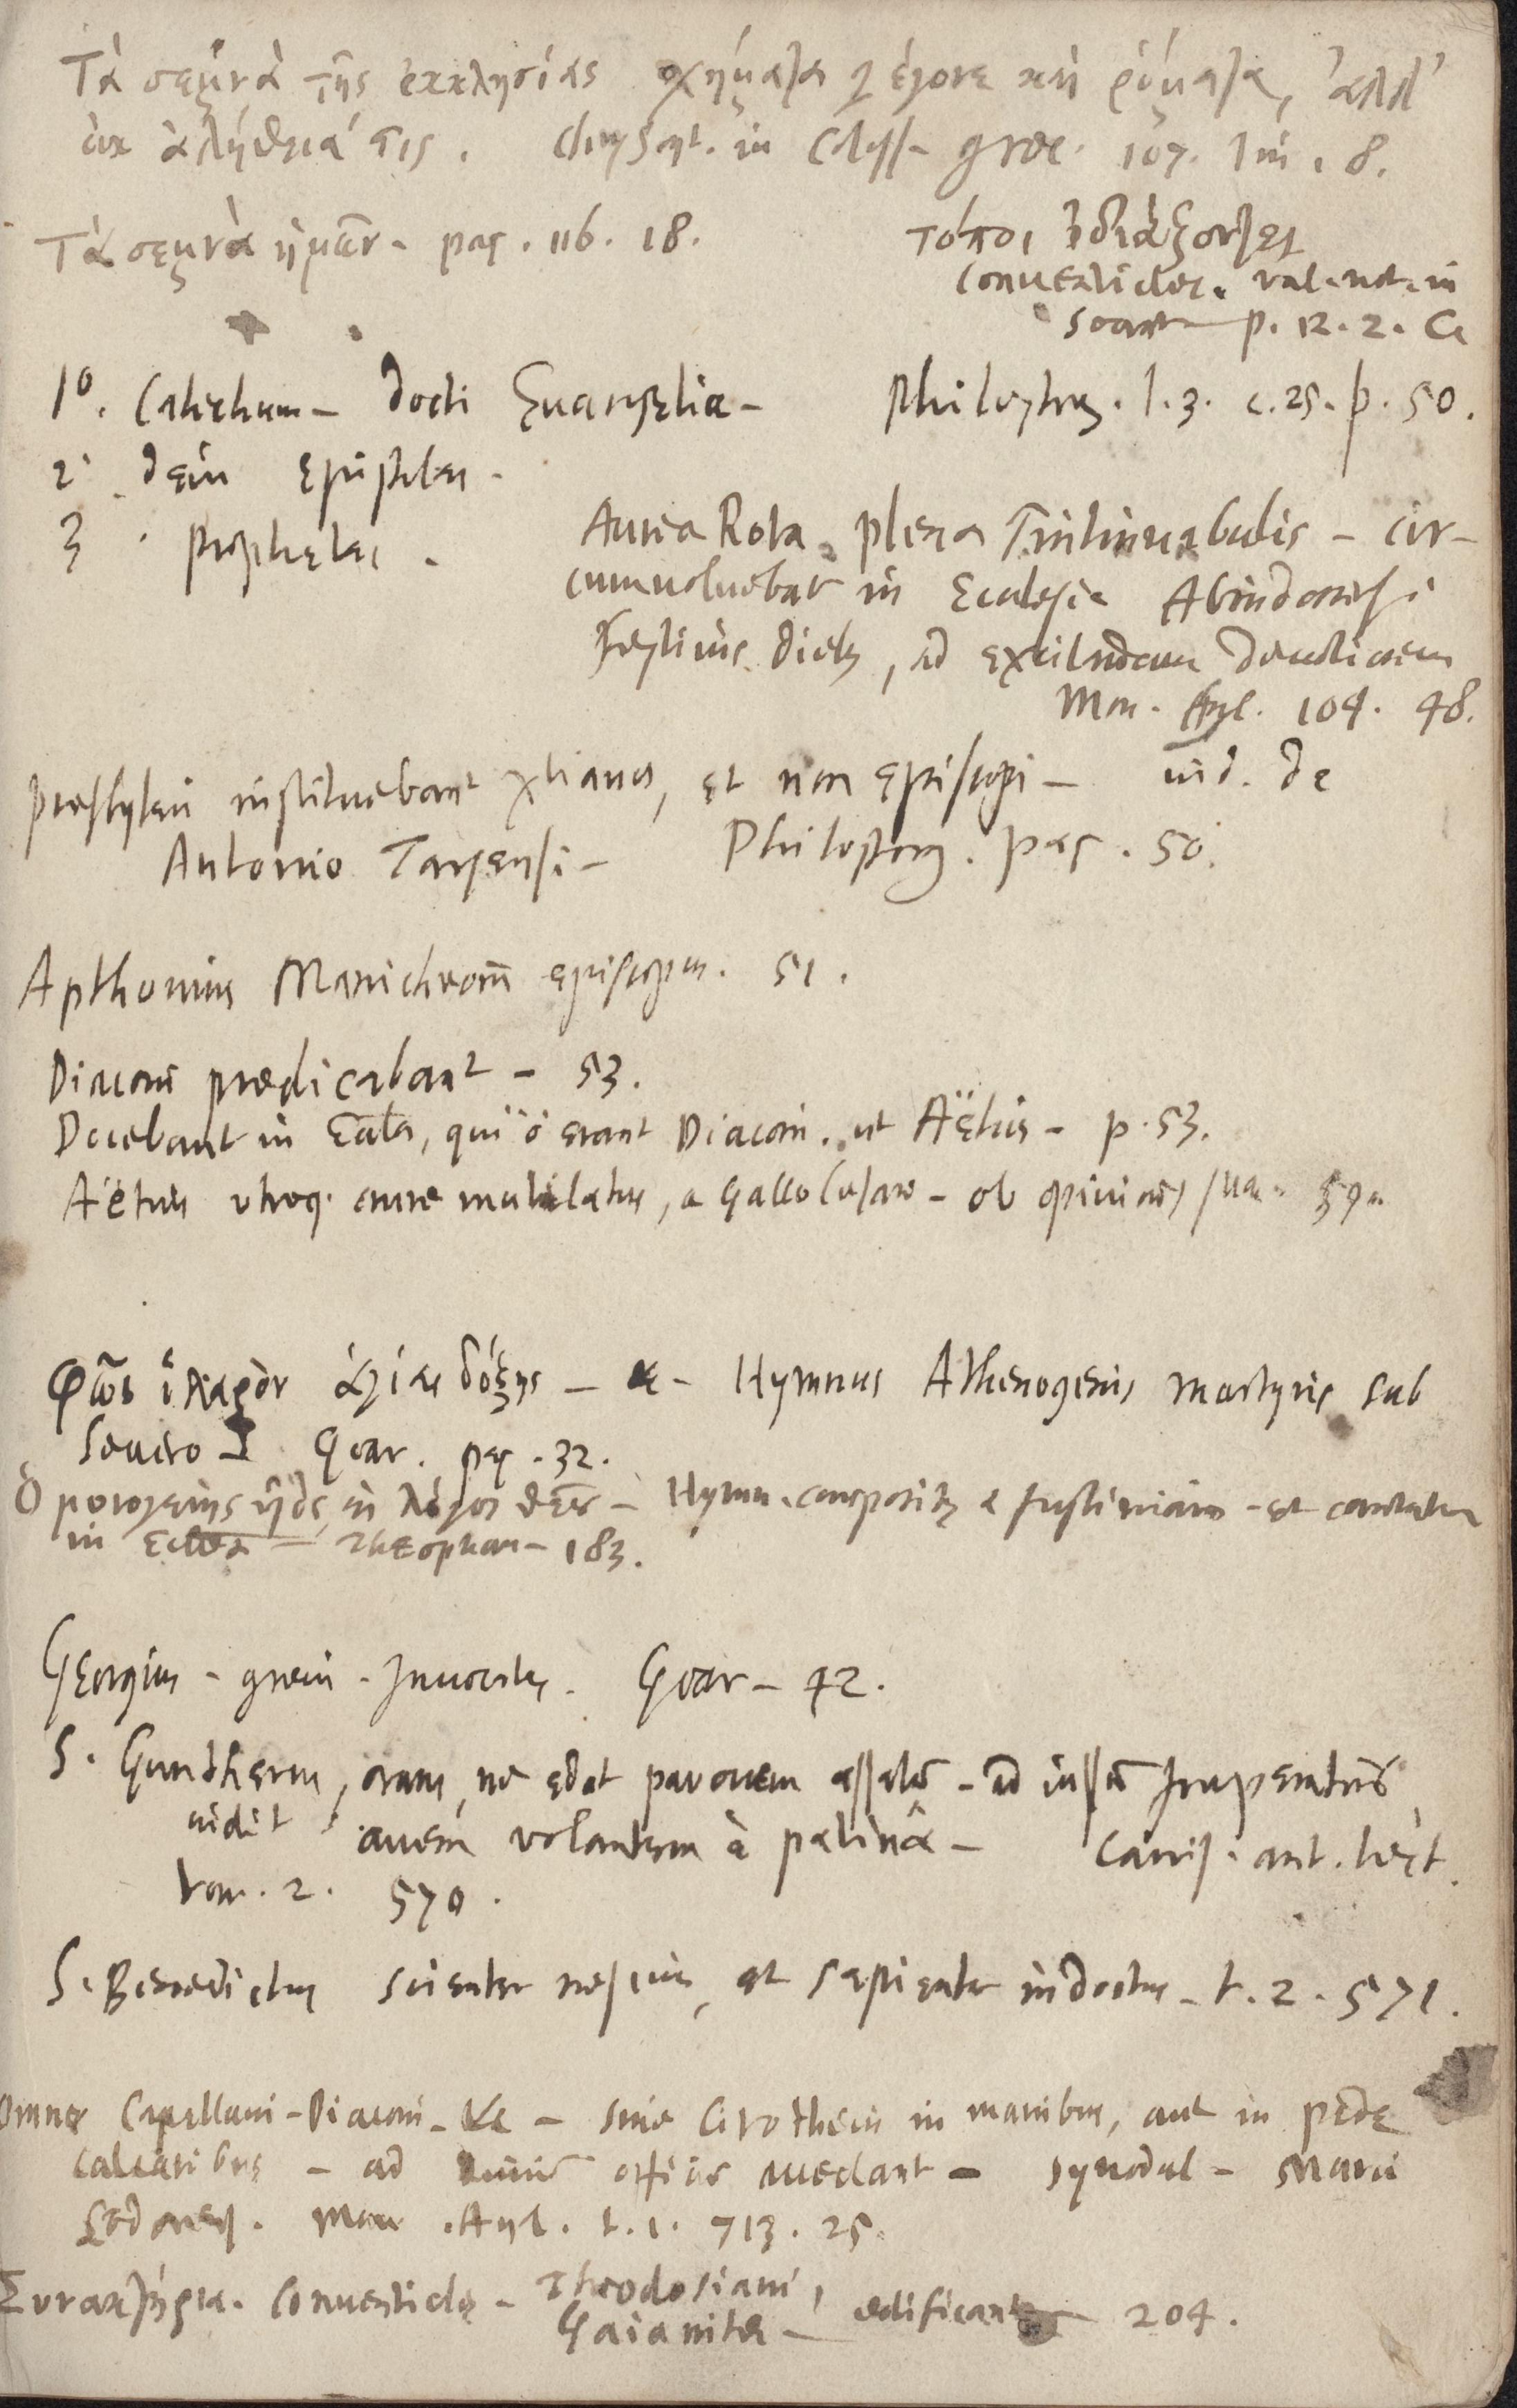 Τὰ σεμνὰ τῆς ἐκκλησίας σχήματα γέγονε καὶ ῥήματα, ἀλλ'
οὐκ ἀλήθειά τις. Chrysost. in Coloss. græc. 107. lin. 8.
Τὰ σεμνὰ ἡμῶν - pag. 116. 18.
τόποι ἰδιάζοντες
conventicles. val. not. in
Socrat p. 12. 2. C
1º. Catechum- docti Evangelia- Philostorg. l. 3. c. 25. p. 50.
2. dein Epistolas.
3. prophetas.
Aurea Rota plena Tintinnabulis - cir-
cumvolvebat in Ecclesia Abindonensi
festivis diebus, ad excitandam devotionem
Mon. Angl. 104. 48.
presbyteri instituebant xtianos, et non episcopi - vid. de
Antonio Tarsensi - Philostorg. pag. 50.
Apthonius Manicheorū episcopus. 51.
Diaconi prædicabant - 53.
Docebant in Eccla, qui ō erant Diaconi. ut Aëtius - p. 53.
Aëtius utroq. crure mutilatus, a Gallo Cæsare - ob opiniones suas
Φῶς ἱλαρὸν ἁγίας δόξης - Hymnus Athenogenis Martyris sub
Severo - Goar. pag. 32.
Ὁ μονογενὴς υἱὸς καὶ λόγος θεοῦ - Hymn. compositus a Justiniano - et cantatur
in Eccla - Theophan - 183.
Georgius - græci - Invocatus. Goar - 42.
S. Guntherus, orans, ne edat pavonem assatū - ad jussū Imperatoris
vidit avem volantem è patinâ - Canis. ant. lect.
tom. 2. 570.
S. Benedictus scienter nescius, et sapienter indoctus - t. 2. 571.
Omnes Capellani - Diaconi - &c - sine Cirothecis in manibus, aut in pede
calcaribus - ad officia accedant - synodal - Marci
Sodorens. Mon. Angl. t. 1. 713. 25.
Συνακτήρια. Conventicle - Theodosiani,
Gaianitæ - ædificant - 204.